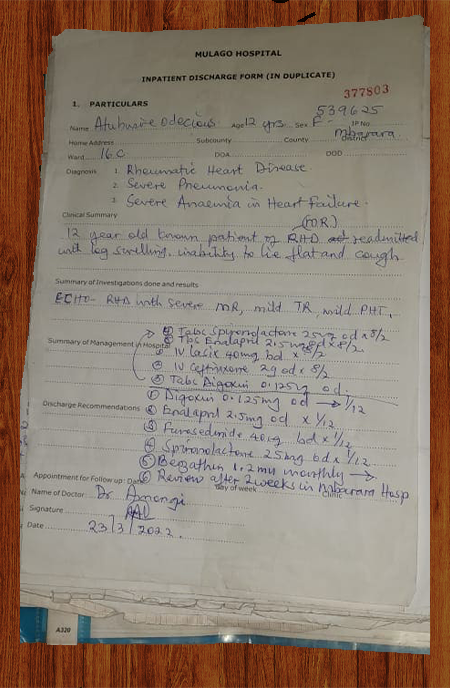 MULAGO HOSPITAL
INPATIENT DISCHARGE FORM (IN DUPLICATE)
377803
1. PARTICULARS
539625
Name Atuhurire Odecious Age 12 yrs Sex F IP No
Mbarara
Home Address Subcounty County District
Ward 16C DOA DOD
Diagnosis 1. Rheumatic Heart Disease.
2. Severe Pneumonia.
3. Severe Anaemia in Heart failure.
Clinical Summary
12 year old known patient of RHD readmitted
with leg swelling, inability to lie flat and cough
Summary of Investigations done and results
ECHO- RHD with severe MR, mild TR, mild PHT,
Tabs Spironolactone 25mg od x 8/7
Tbs Enalapril 2.5mg od x 8/7
Summary of Management in Hospital
IV lasix 40mg bd x 8/7
IV Ceftriaxone 2g od x 8/7
Tabs Digoxin 0.125mg od.
① Digoxin 0.125mg od → 1/12
Discharge Recommendations ② Enalapril 2.5mg od x 1/12
③ Furosedmide 40mg bd x 1/12
④ Spironolactone 25mg bd x 1/12
⑤ Benzathin 1.2 mu monthly →
Appointment for Follow up: Date day of week Clinic
⑥ Review after 2 weeks in Mbarara Hosp
Name of Doctor Dr Amongi
Signature
Date 23/3/2022.
A320